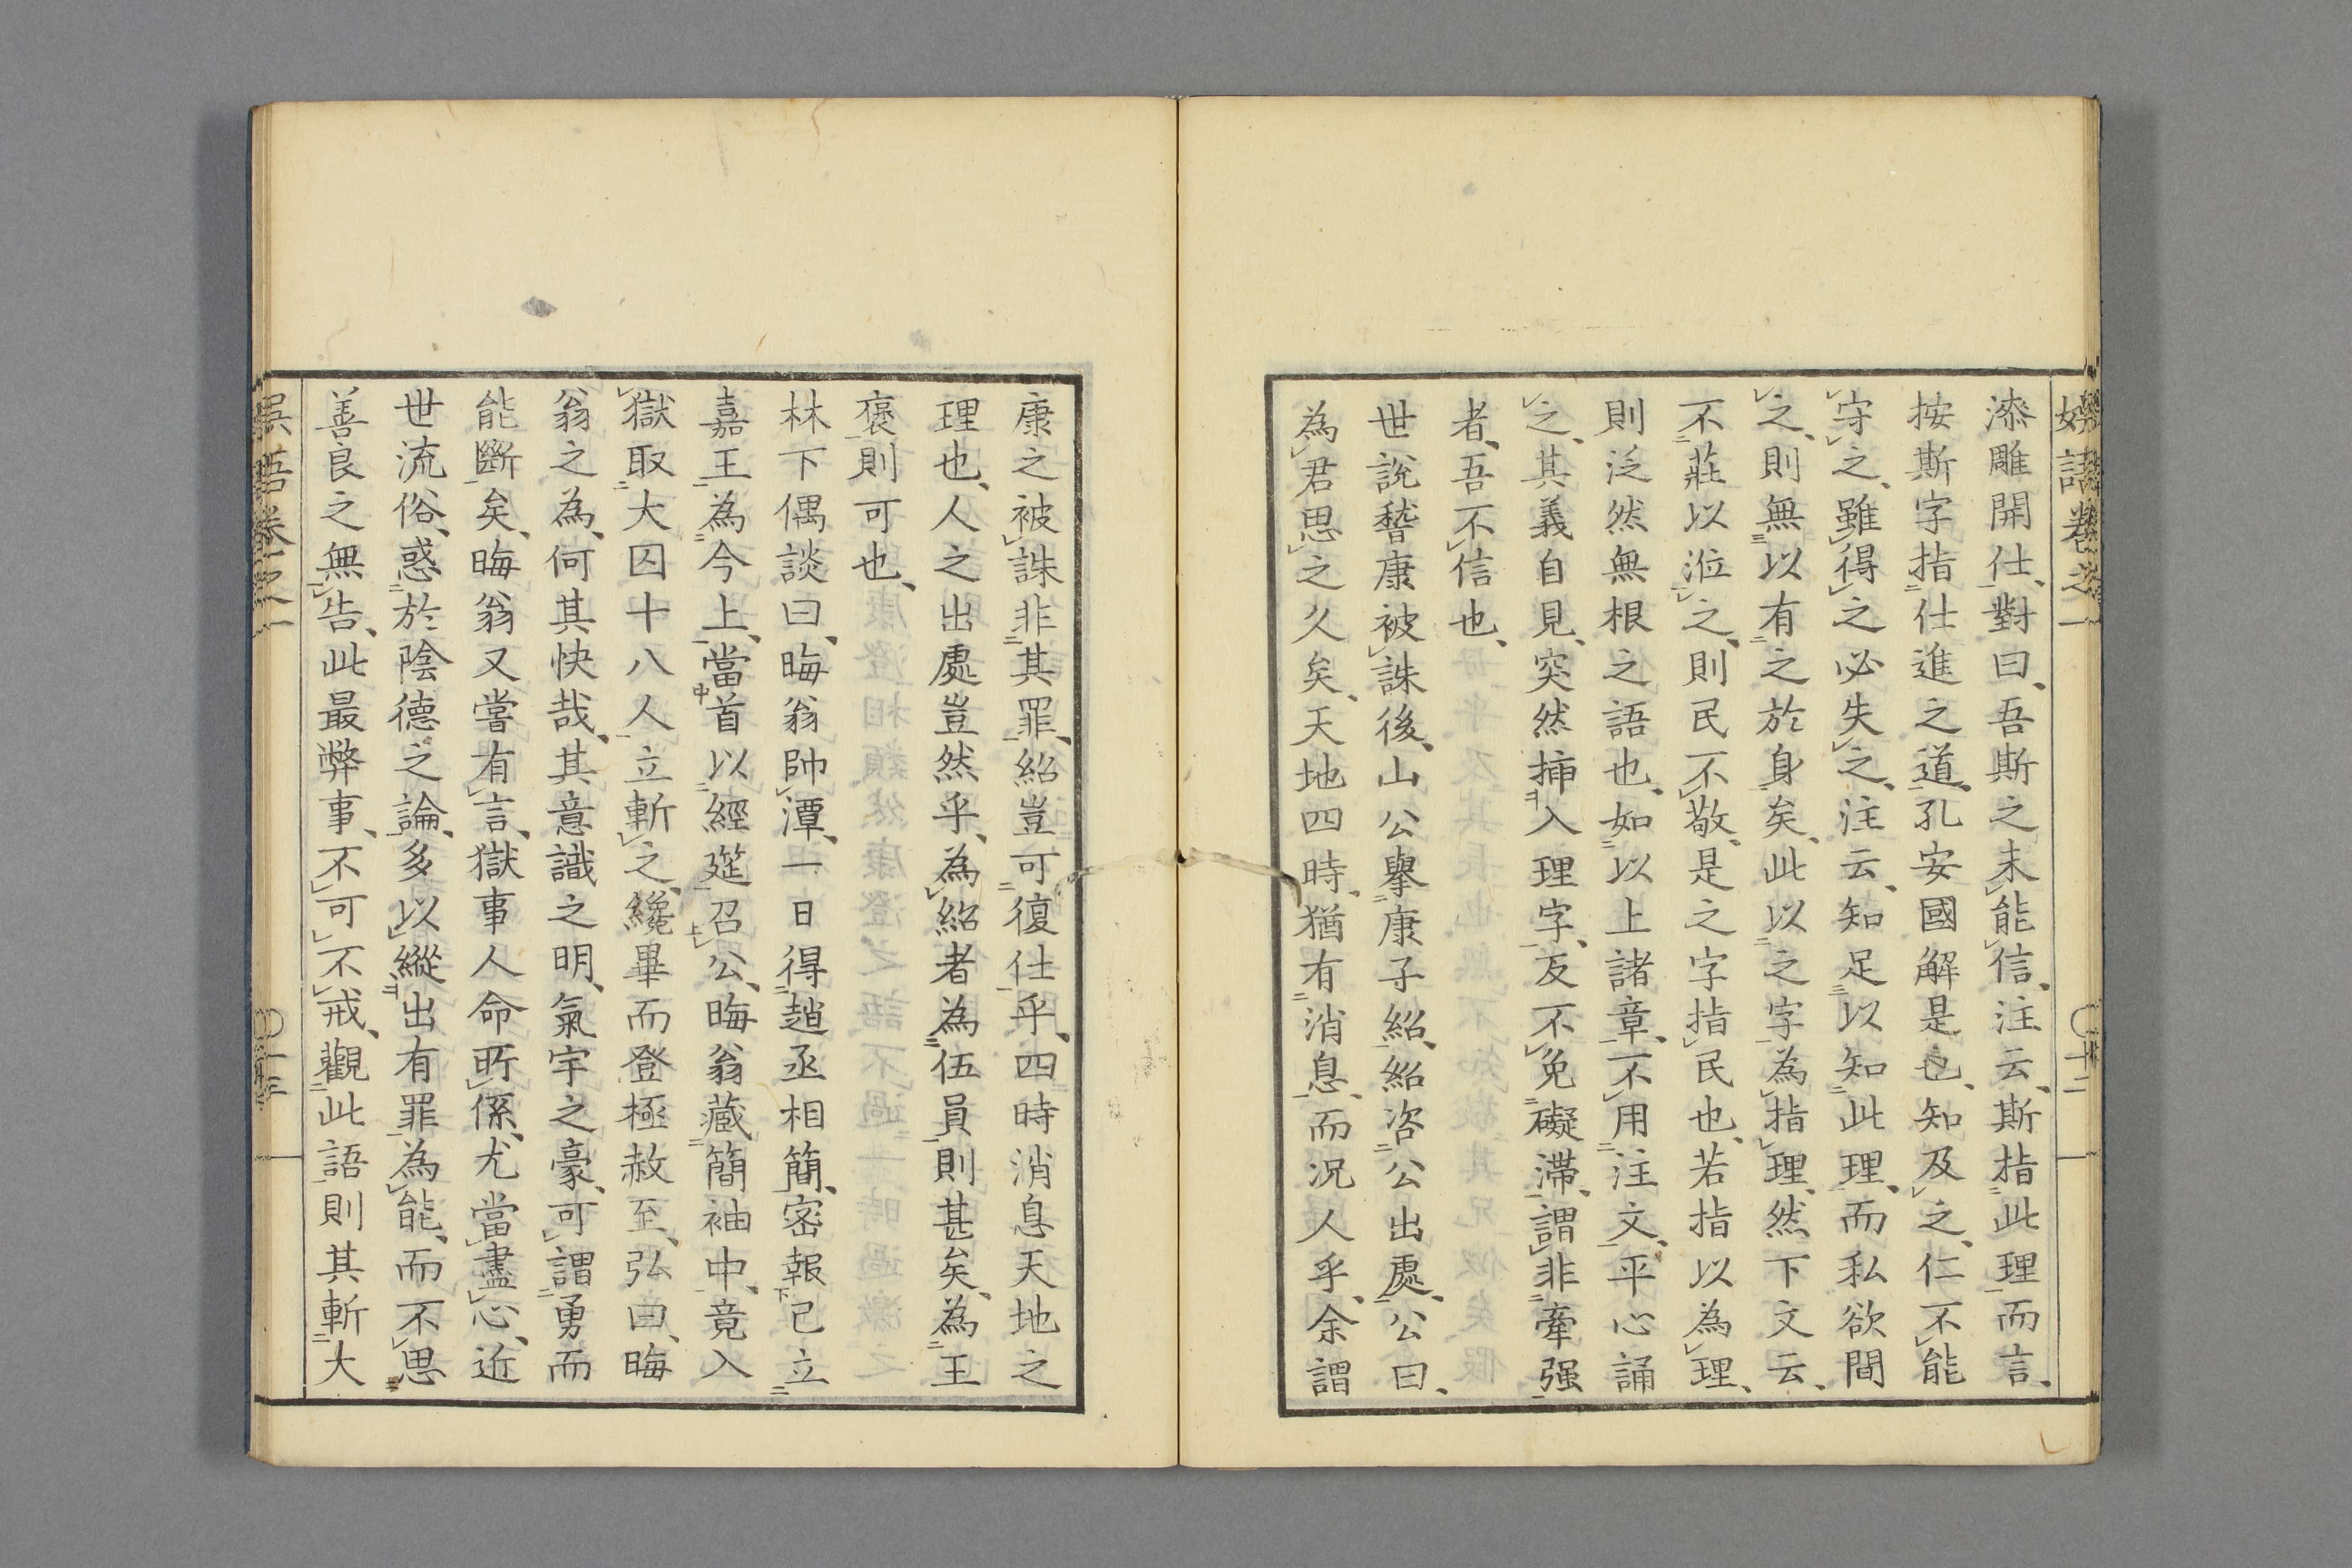 漆雕開仕、對曰、吾斯之未能信、注云、斯指此理而言、
按斯字指仕進之道、孔安國解是也、知及之、仁不能
守之、雖得之必失之、注云、知足以知此理、而私欲間
之、則無以有之於身矣、此以之字為指理、然下文云、
不莊以涖之、則民不敬、是之字指民也、若指以為理、
則泛然無根之語也、如以上諸章、不用注文、平心誦
之、其義自見、突然揷入理字、反不免礙滯、謂非牽强
者、吾不信也、
世說嵆康被誅後、山公擧康子紹、紹咨公出處、公曰、
為君思之久矣、天地四時、猶有消息、而况人乎、余謂
康之被誅非其罪、紹豈可復仕乎、四時消息天地之
理也、人之出處豈然乎、為紹者為伍員則甚矣、為王
褒則可也、
林下偶談曰、晦翁帥潭、一日得趙丞相簡、密報已立
嘉王為今上、當首以經筵召公、晦翁藏簡袖中、竟入
獄取大囚十八人立斬之、纔畢而登極赦至、弘曰、晦
翁之為、何其快哉、其意識之明、氣宇之豪、可謂勇而
能斷矣、晦翁又嘗有言、獄事人命所係、尤當盡心、近
世流俗、惑於陰德之論、多以縱出有罪為能、而不思
善良之無告、此最弊事、不可不戒、觀此語則其斬大